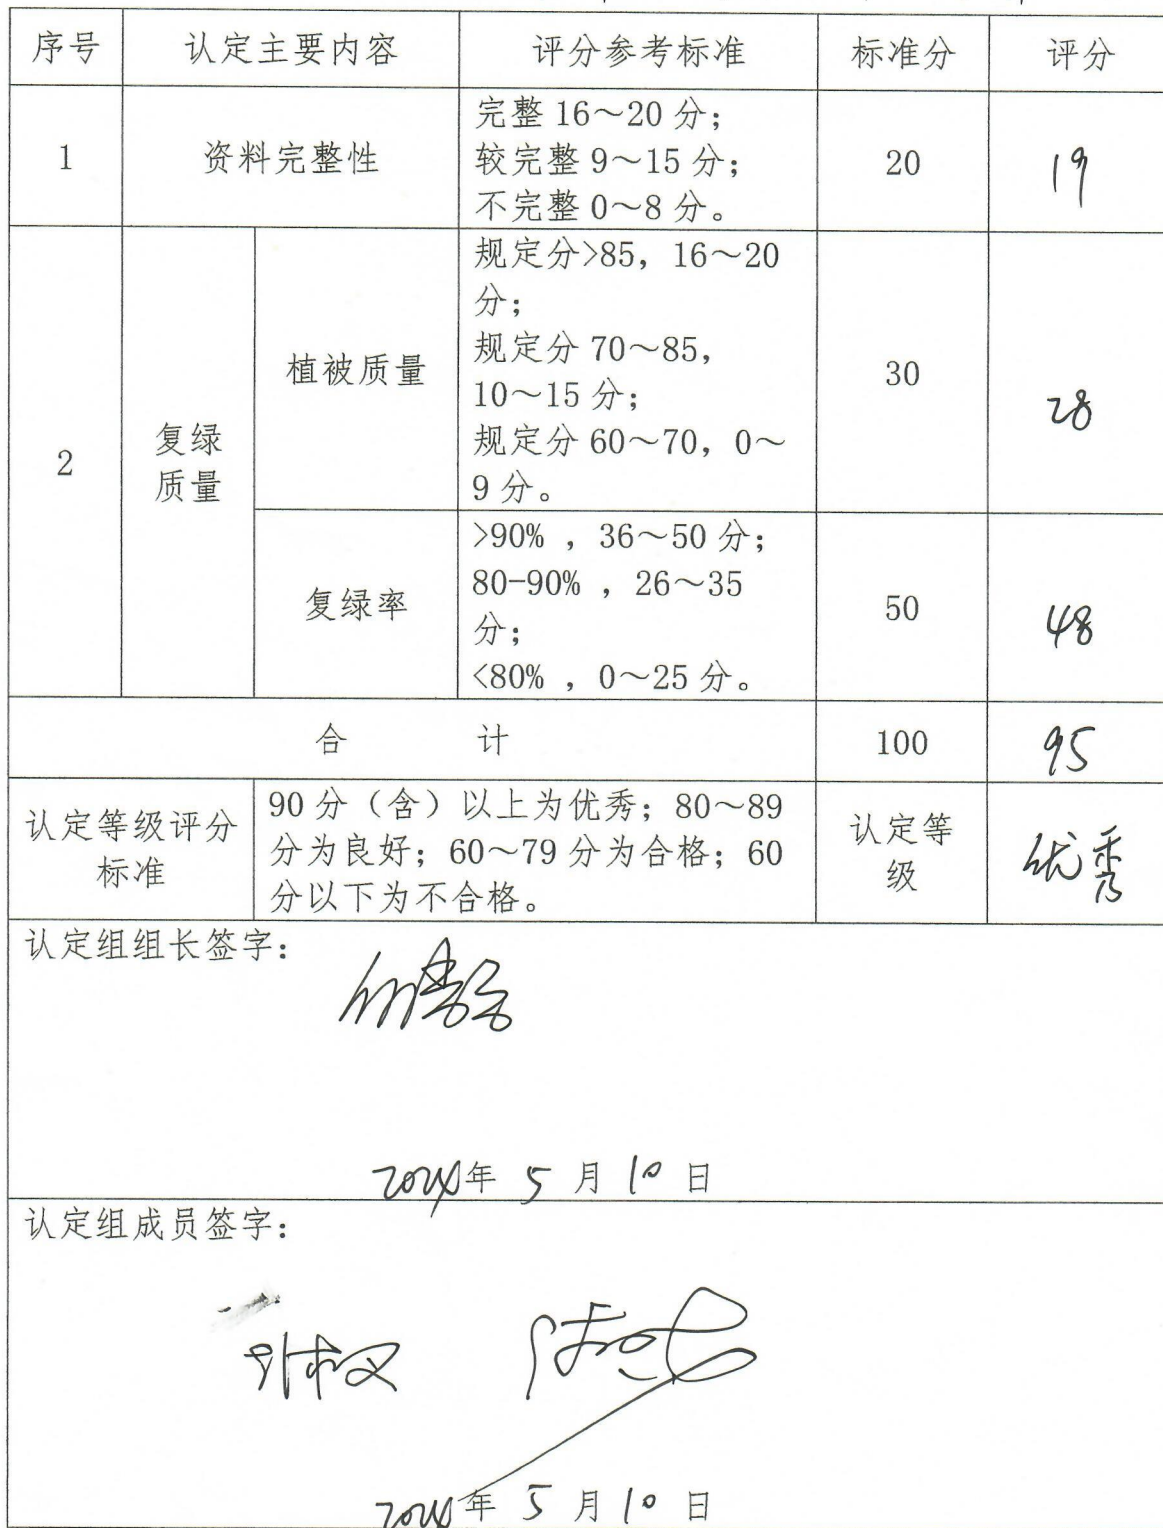 序号 认定主要内容 评分参考标准 标准分 评分
1 资料完整性 20 19
完整 16～20 分；
较完整 9～15 分；
不完整 0～8 分。
2
复绿
质量
植被质量 30 28
规定分>85，16～20
分；
规定分 70～85，
10～15 分；
规定分 60～70，0～
9 分。
复绿率 50 48
>90% ，36～50 分；
80-90% ，26～35
分；
<80% ，0～25 分。
合 计 100 95
认定等级评分
标准
90 分（含）以上为优秀；80～89
分为良好；60～79 分为合格；60
分以下为不合格。
认定等
级
优秀
认定组组长签字：
2024年 5 月 10 日
认定组成员签字：
2024年 5 月 10 日